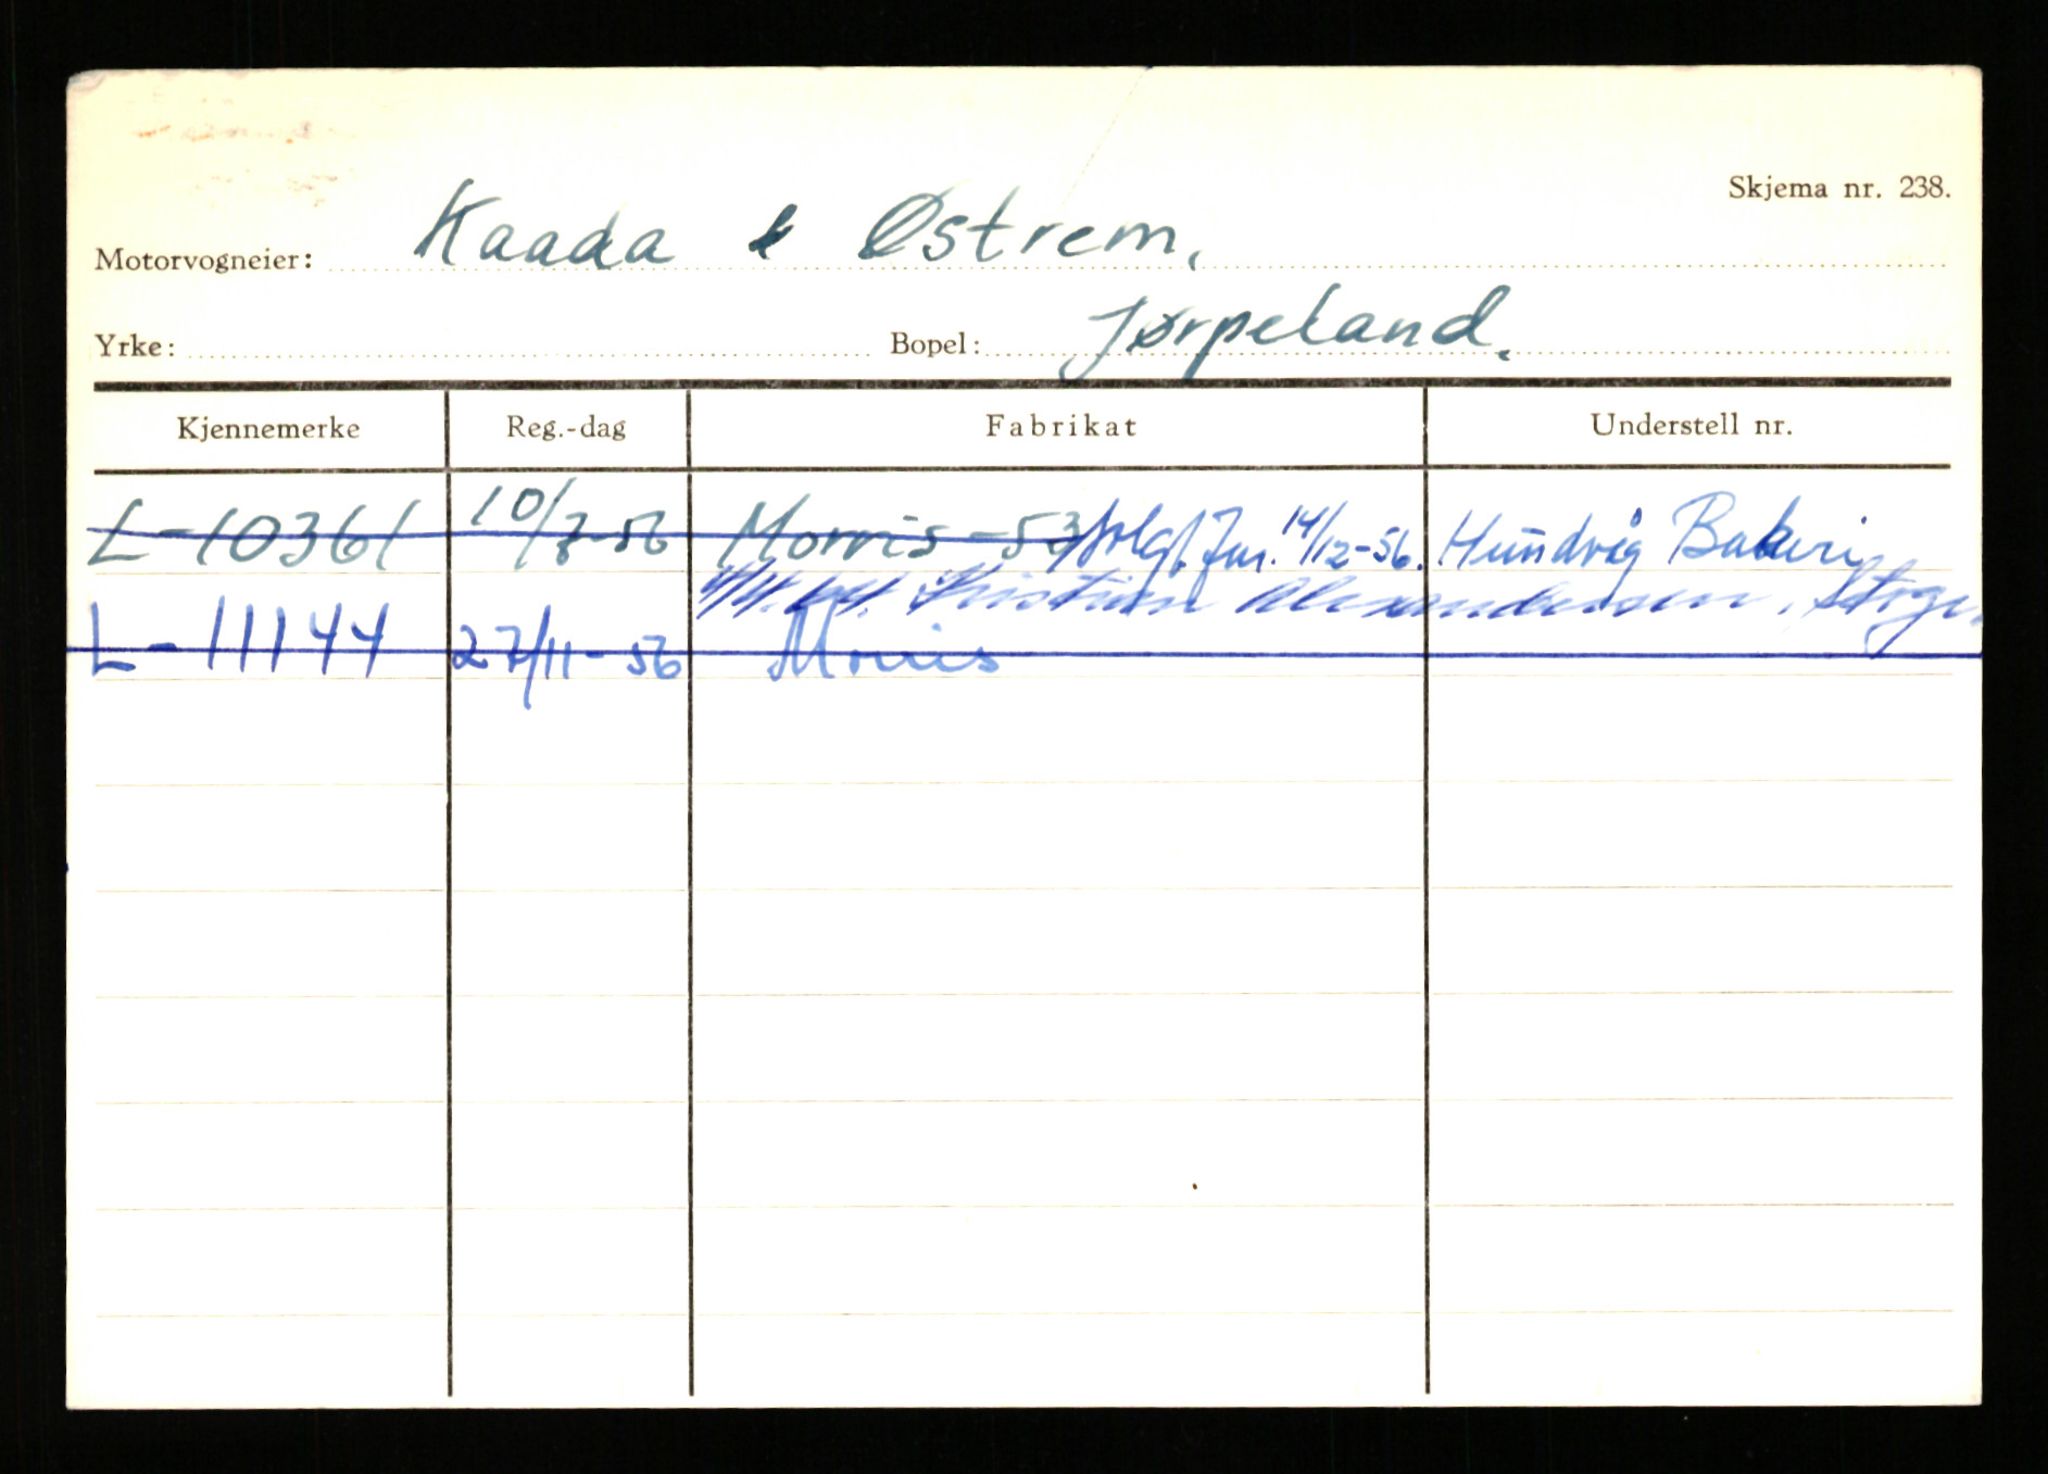 Skjema nr. 238.
Motorvogneier: Kaada & Østrem,
Yrke: Bopel: Jørpeland.
Kjennemerke Reg.-dag Fabrikat Understell nr.
L-10361 10/7-56 Morris -53 solgt 14/12-56. Hundvåg Bakeri
Kristian Alexandersen,
L-11144 27/11-56 Morris